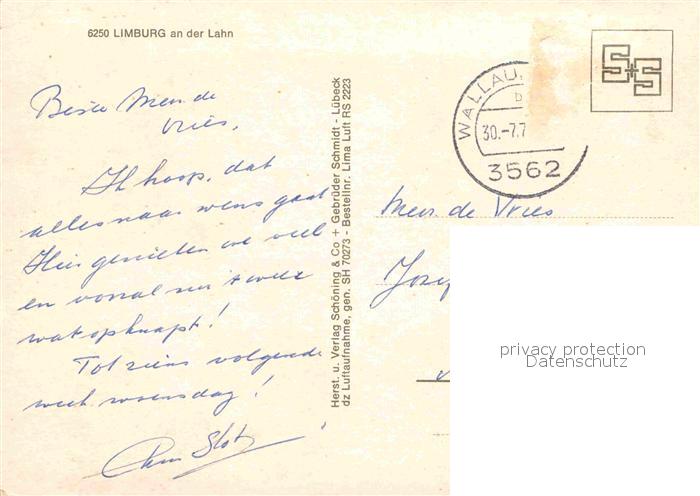 6250 LIMBURG an der Lahn
Beste Mevr. de
Vries,
Ik hoop, dat
alles naar wens gaat
Hier genieten we veel
en vooral nu 't weer
wat opknapt!
Tot ziens volgende
week woensdag!
Herst. u. Verlag Schöning & Co + Gebrüder Schmidt - Lübeck
dz Luftaufnahme, gen. SH 70273 - Bestellnr. Lima Luft RS 2223
WALLAU,
b
30.-7.7
3562
S+S
Mevr. de Vries
Josef
privacy protection
Datenschutz